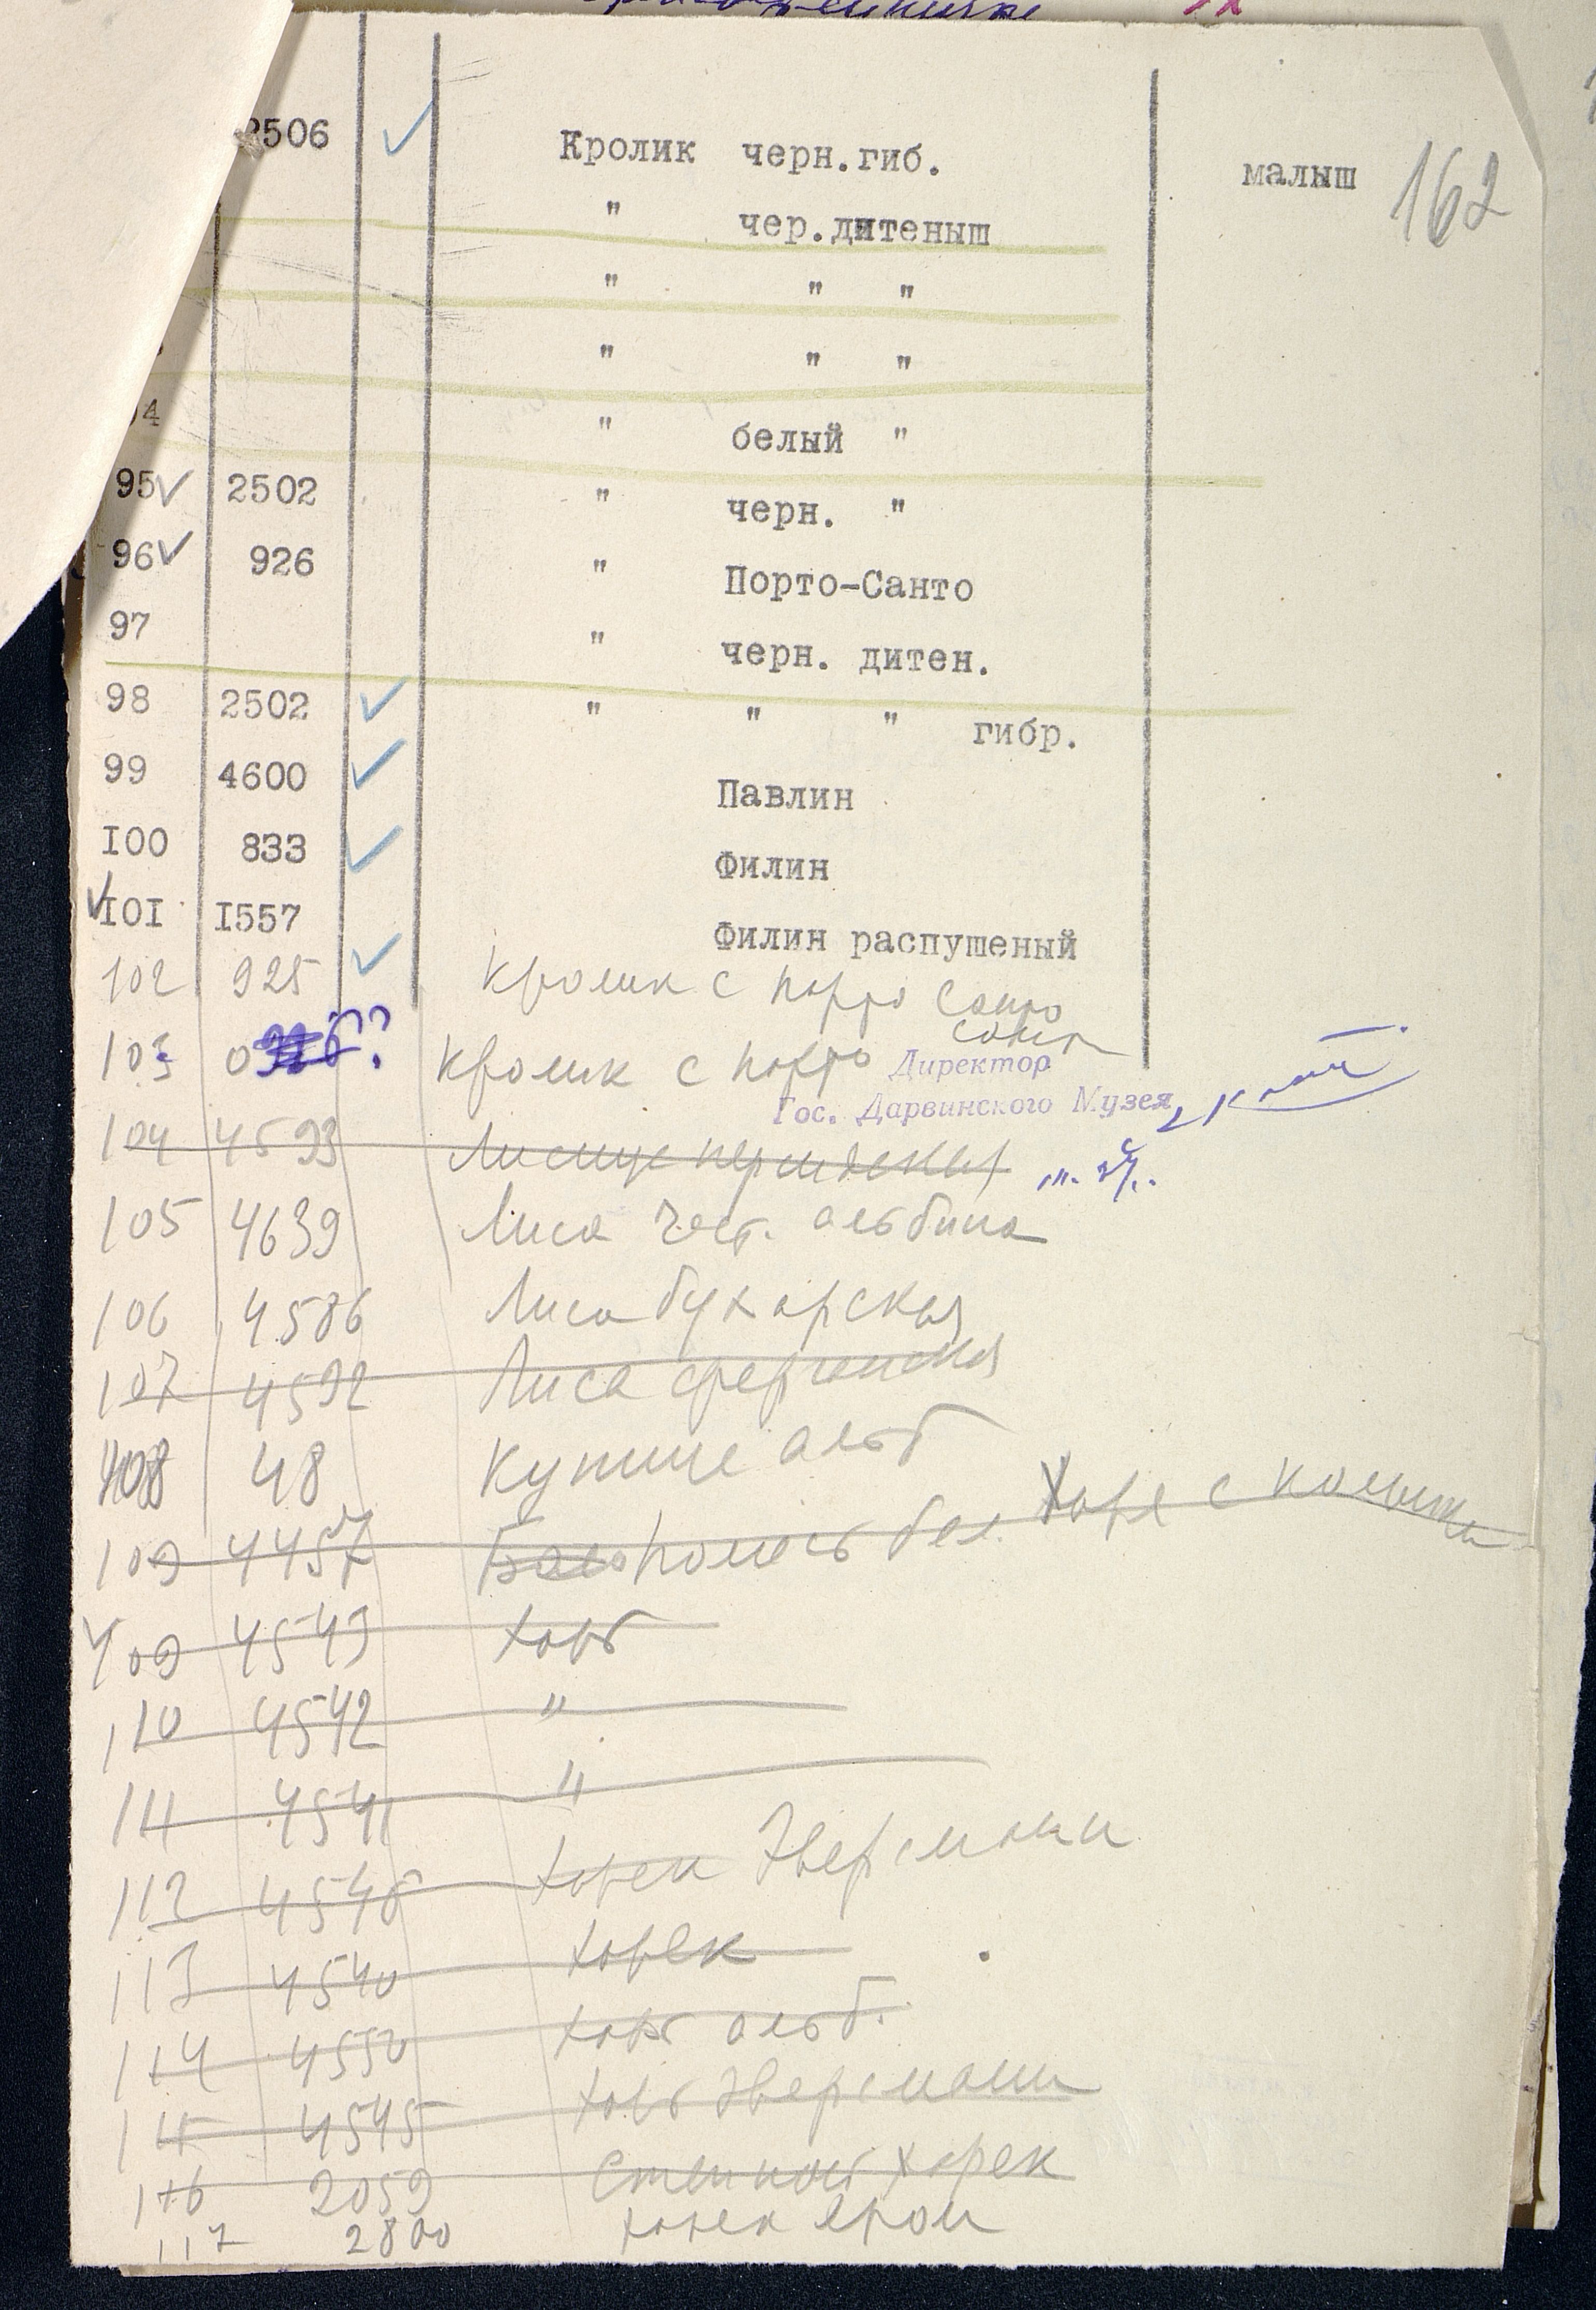 2506 Кролик черн.гиб. малыш 162
" чер.дитеныш
" " "
" " "
94 " белый "
95 2502 " черн. "
96 926 " Порто-Санто
97 " черн. дитен.
98 2502 " " " гибр.
99 4600 Павлин
I00 833 Филин
I0I I557 Филин распушеный
102 925 Кролик с порто Санто
103 0 ? Кролик с порто Санто
Директор
Гос. Дарвинского Музея
104 4593 Лисица
105 4639 Лиса част. альбино
106 4586 Лиса бухарская
107 4592 Лиса ферганская
108 48 Куница альб
109 4457 Помесь бел. Хоря с
109 4549 Хорь
110 4542 "
111 4541 "
112 4546 Хорек Эверсмани
113 4540 Хорек
114 4550 Хорь альб.
115 4545 Хорь Эверсмани
116 2059 Степной хорек
117 2800 Хорек